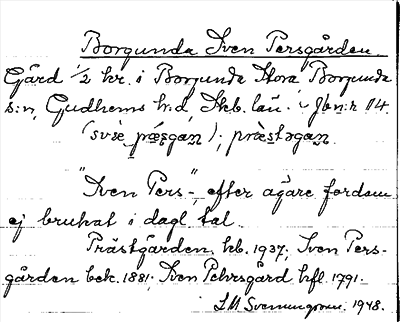 Borgunda Sven Persgården
Gård 1/2 hr. i Borgunda Stora Borgunda
s:n, Gudhems h:d, Skb. län. Jbn:r 114.
(svèe præ̀sgaṉ); præ̀stəgaṉ.
"Sven Pers-", efter ägare fordom
ej brukat i dagl. tal.
Prästgården, hb. 1937; Sven Pers-
gården bek. 1881; Sven Pehrsgård hfl. 1791.
1948.